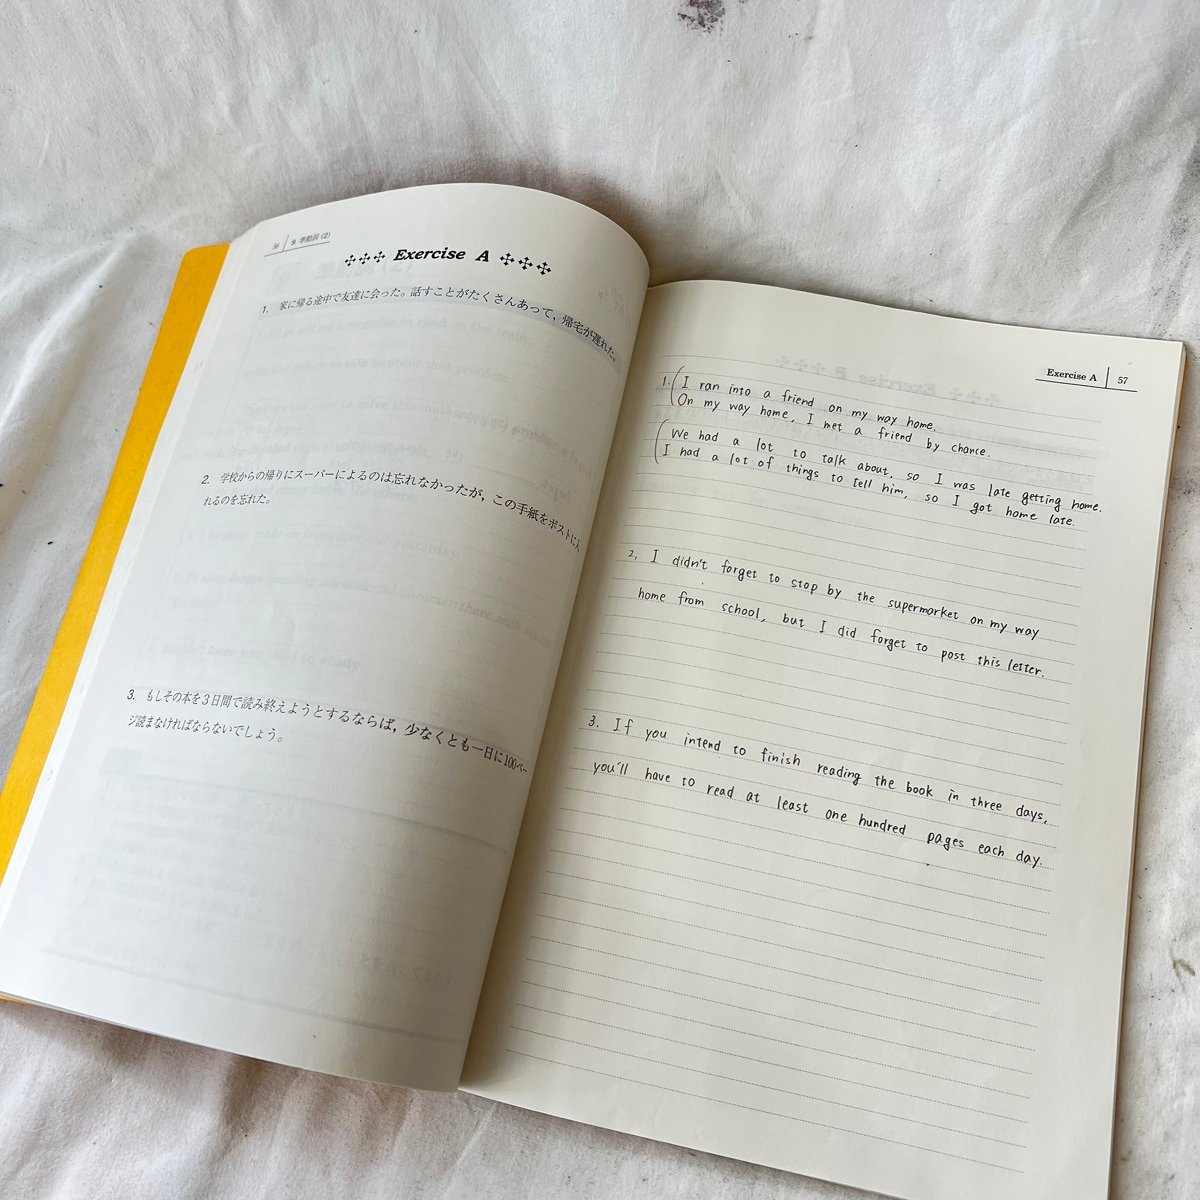 56 9. 準動詞 (2)
Exercise A
1. 家に帰る途中で友達に会った。話すことがたくさんあって，帰宅が遅れた。
2. 学校からの帰りにスーパーによるのは忘れなかったが，この手紙をポストに入
れるのを忘れた。
3. もしその本を３日間で読み終えようとするならば，少なくとも一日に100ペー
ジ読まなければならないでしょう。
Exercise A 57
1. I ran into a friend on my way home.
On my way home, I met a friend by chance.
We had a lot to talk about, so I was late getting home.
I had a lot of things to tell him, so I got home late.
2, I didn't forget to stop by the supermarket on my way
home from school, but I did forget to post this letter.
3. If you intend to finish reading the book in three days,
you'll have to read at least one hundred pages each day.